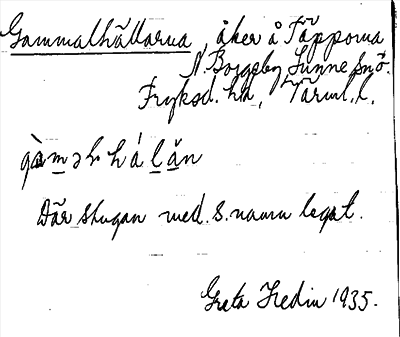 Gammalhållarna, åker å Täpporna
N. Borgeby Sunne sn ö.
Fryksd. hd, Värml. l.
gàmǝlhálån
Där stugan med s. namn legat.
Greta Hedin 1935.